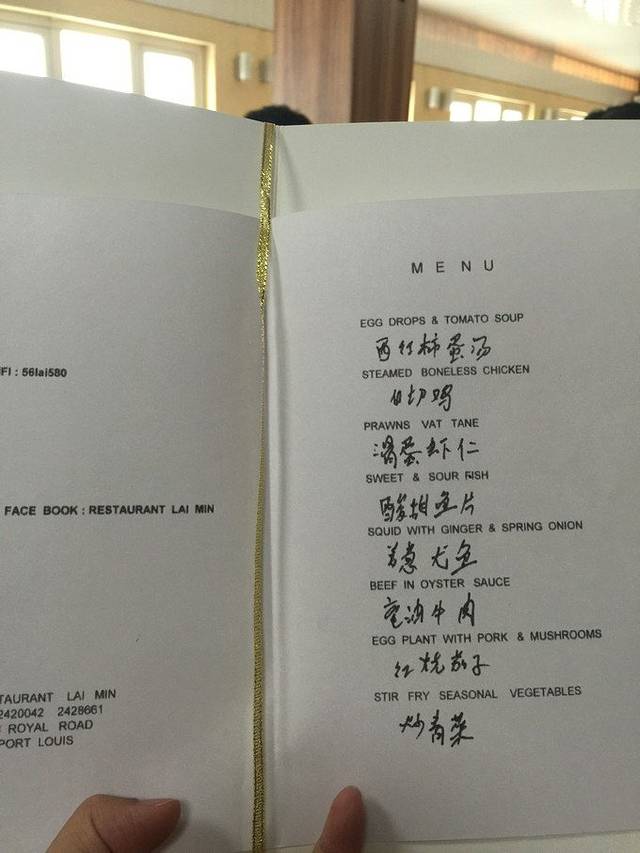 FI : 56lai580
FACE BOOK : RESTAURANT LAI MIN
TAURANT LAI MIN
2420042 2428661
ROYAL ROAD
PORT LOUIS
MENU
EGG DROPS & TOMATO SOUP
西红柿蛋汤
STEAMED BONELESS CHICKEN
白切鸡
PRAWNS VAT TANE
滑蛋虾仁
SWEET & SOUR FISH
酸甜鱼片
SQUID WITH GINGER & SPRING ONION
姜葱尤鱼
BEEF IN OYSTER SAUCE
蚝油牛肉
EGG PLANT WITH PORK & MUSHROOMS
红烧茄子
STIR FRY SEASONAL VEGETABLES
炒青菜